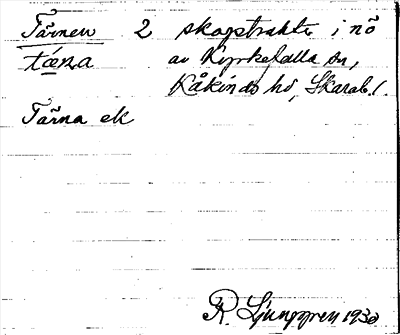 Tärnen 2 skogstrakter i nö
tǽna av Kyrkefalla sn,
Kåkinds hd, Skarab. l.
Tärna ek
R. Ljunggren 1930